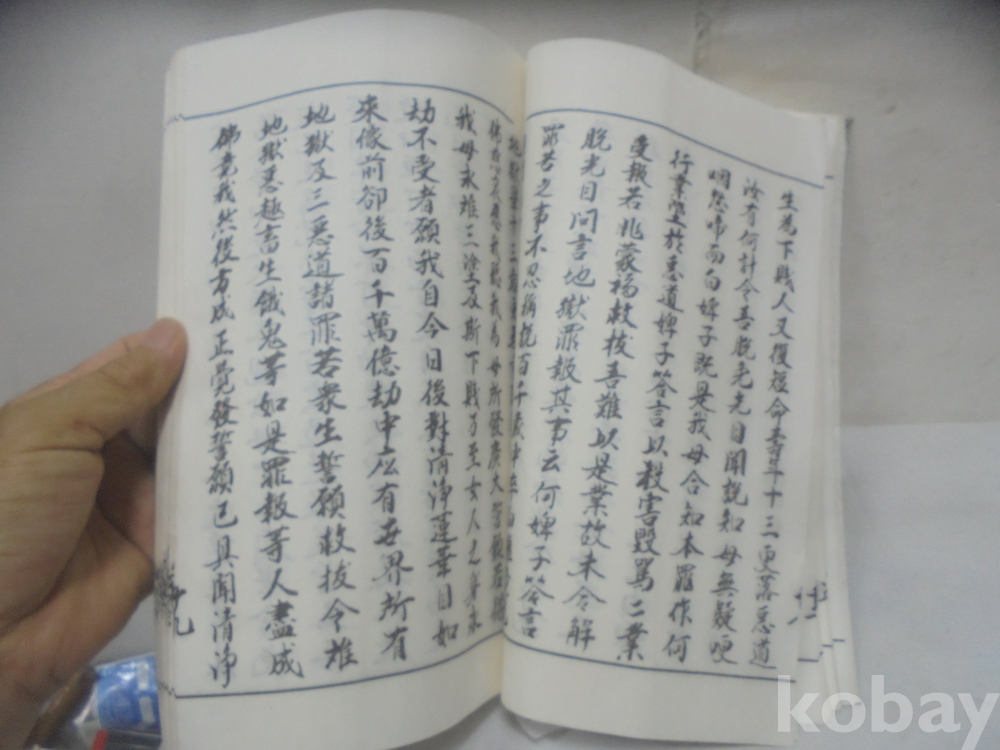 生為下賤人又復短命壽年十三更落惡道
汝有何計令吾脫免光目聞說知母無疑哽
咽悲啼而白婢子既是我母合知本罪作何
行業墮於惡道婢子答言以殺害毀罵二業
受報若非蒙福救拔吾難以是業故未合解
脫光目問言地獄罪報其事云何婢子答言
罪苦之事不忍稱說百千歲中
哀愍我聽我為母所發廣大誓願若得
我母永離三塗及斯下賤乃至女人之身永
劫不受者願我自今日後對清淨蓮華目如
來像前卻後百千萬億劫中応有世界所有
地獄及三惡道諸罪苦衆生誓願救拔令離
地獄惡趣畜生餓鬼等如是罪報等人盡成
佛竟我然後方成正覺發誓願已具聞清淨
九
kobay